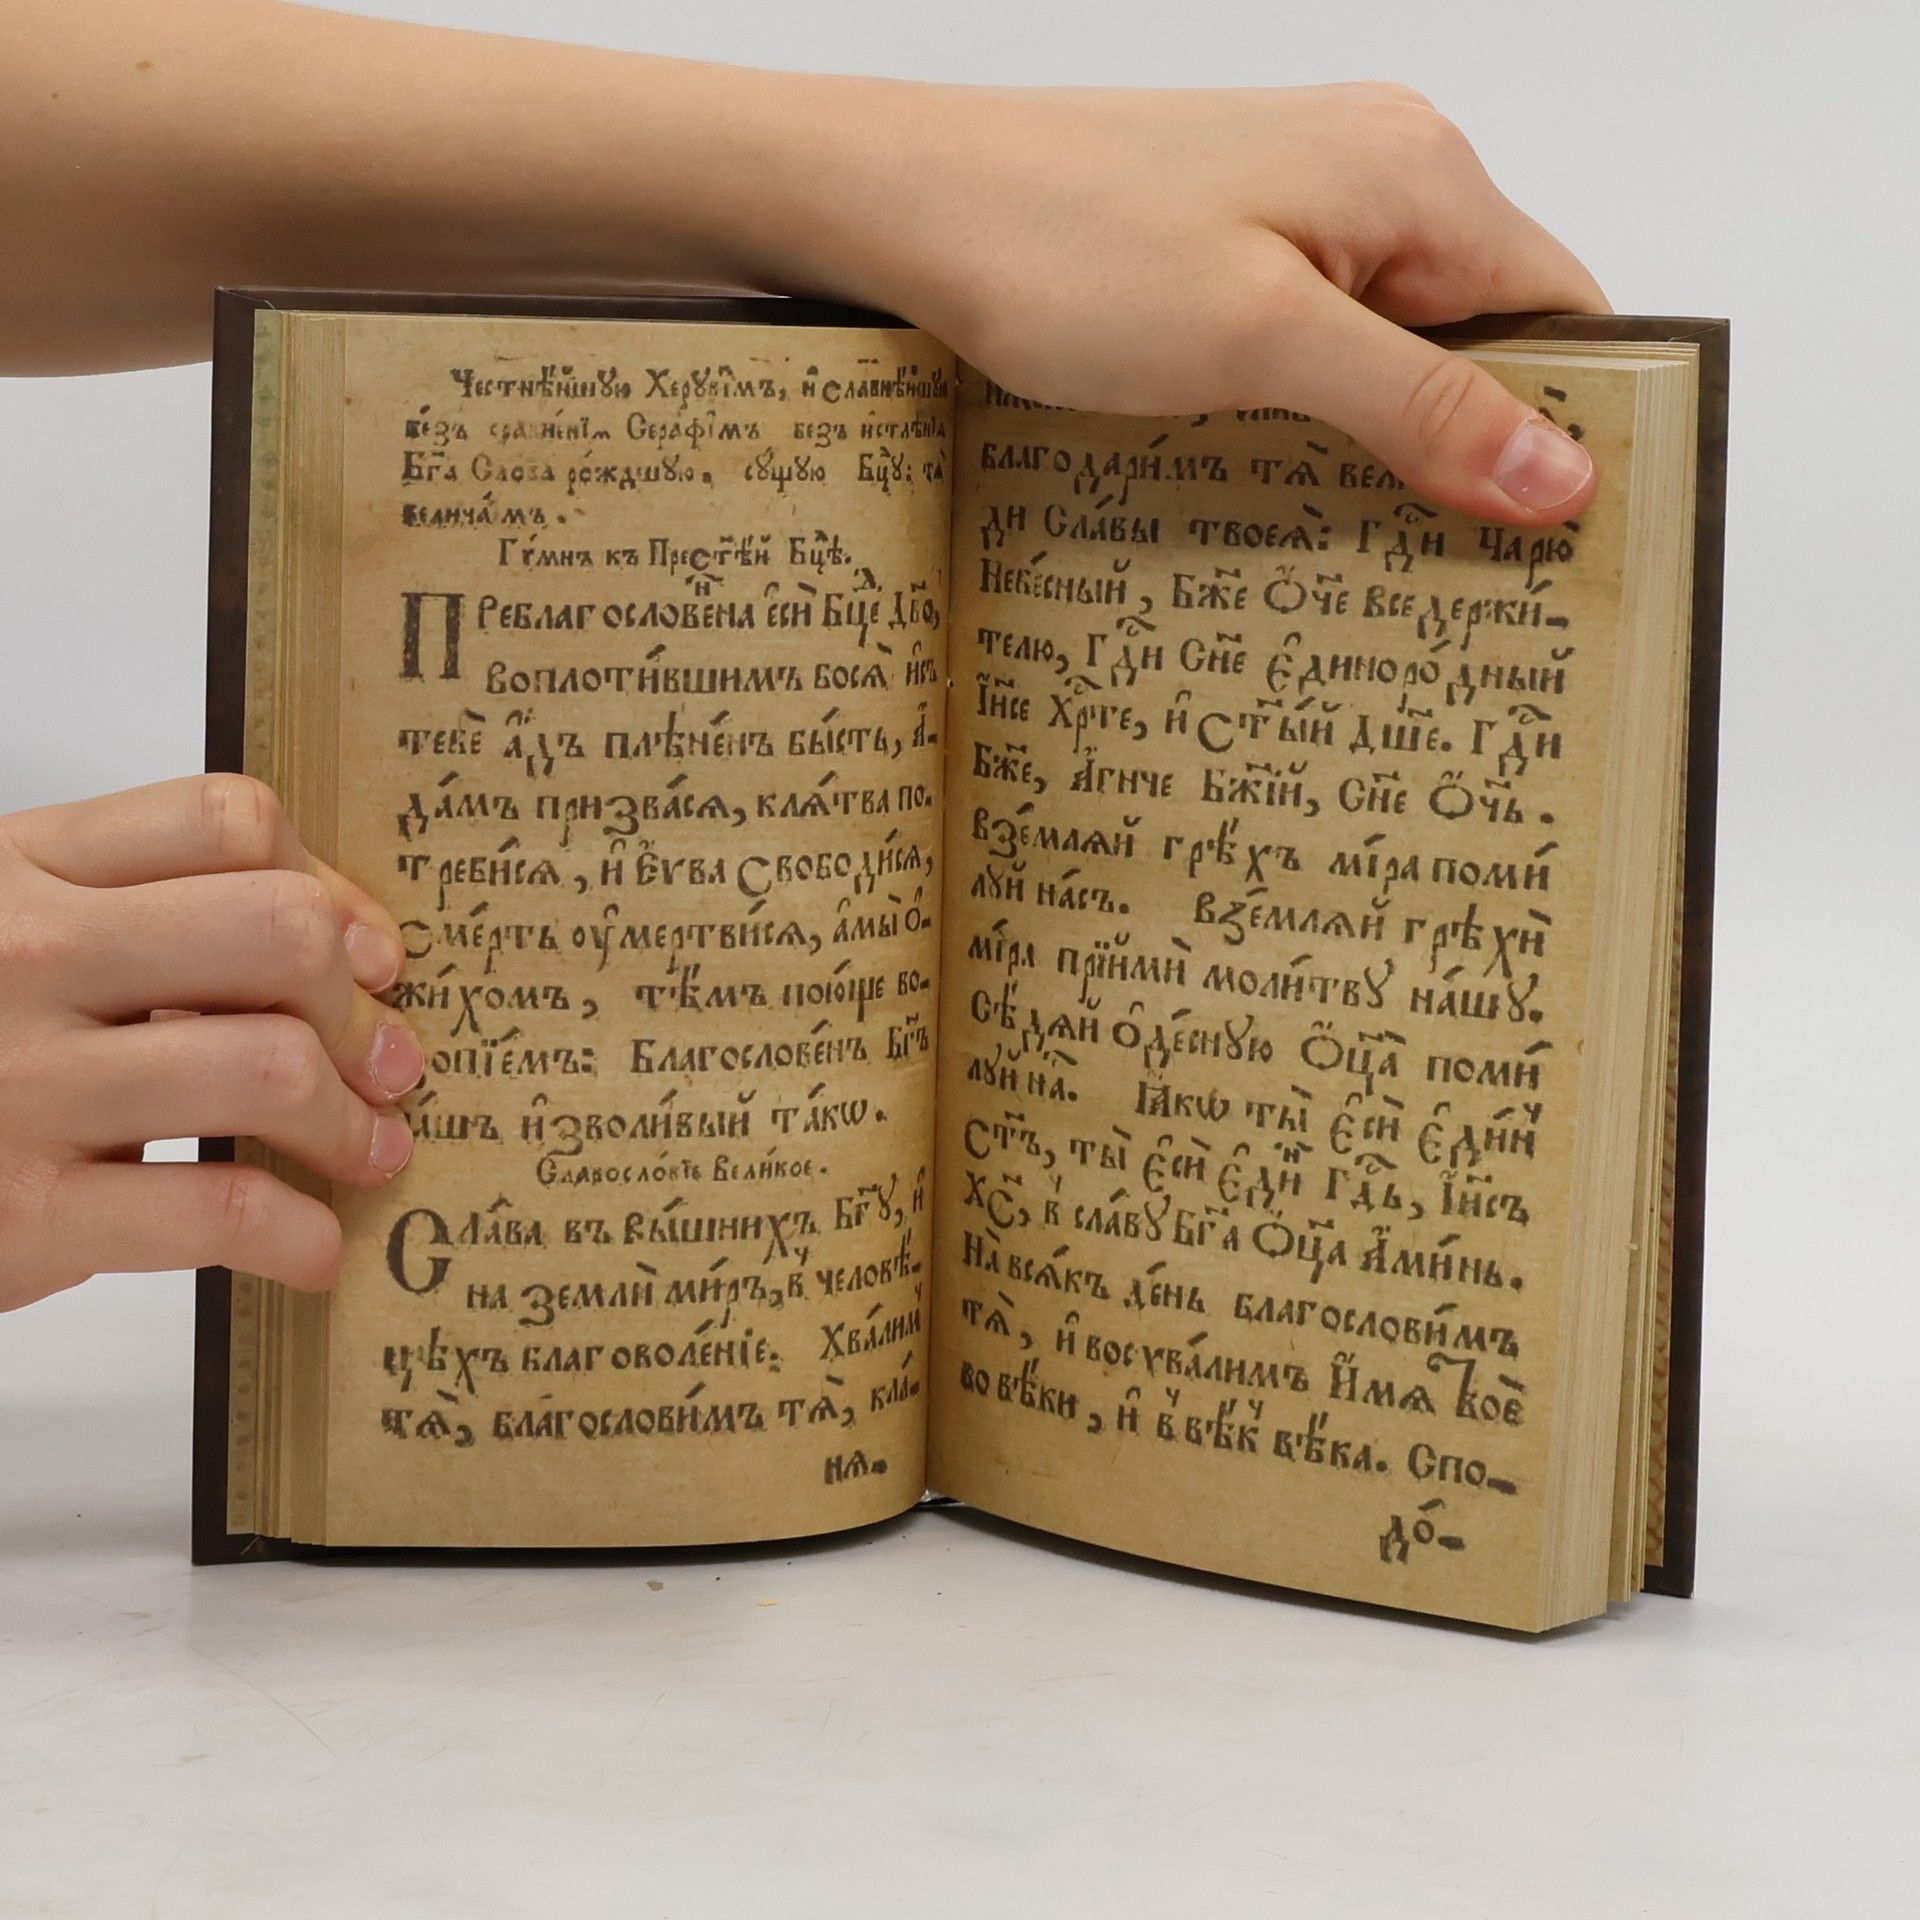 Честнѣ́йшꙋю Херꙋви̑мъ, и҆ славнѣ́йшꙋю
бе́зъ сравне́нїѧ Серафі̑мъ безъ и҆стлѣ́нїѧ
Бг҃а Слова ро́ждшꙋю, сꙋ́щꙋю Бцⷣꙋ: тѧ̀
велича́мъ.
Гѵ́мнъ къ Прест҃ѣ́й Бцⷣѣ.
Преблагословеⷩ҇на є҆сѝ Бцⷣе Дв҃о,
воплоти́вшимъ босѧ̀ и҆съ
тебѐ а҆́дъ плѣне́нъ бы́сть, А҆-
да́мъ призва́сѧ, клѧ́тва по-
треби́сѧ, и҆ Є҆́ѵва свободи́сѧ,
сме́рть оу҆мертви́сѧ, а҆мы̀ о҆-
жи́хомъ, тѣ́мъ пою́ще во-
опїе́мъ: Благослове́нъ Бг҃ъ
а́шъ и҆зволи́вый та́кѡ.
Славосло́вїе Вели́кое.
Сла́ва въ вы́шнихъ Бг҃ꙋ, и҆
на землѝ ми́ръ, в̾ человѣ́-
цѣхъ благоволе́нїе. Хва́лимъ
тѧ̀, благослови́мъ тѧ̀, кла́-
нѧ-
благодари́мъ тѧ̀
ди Сла́вы твоеѧ̀: Гдⷭ҇и Ца́рю̀
Небе́сный, Бж҃е Ѻ҆́ч҃е вседержи́-
телю, Гдⷭ҇и Сн҃е Є҆диноро́дный
І҆и҃се Хрⷭ҇те, и҆ Ст҃ы́й Дш҃е. Гдⷭ҇и
Бж҃е, А҆́гнче Бж҃їй, Сн҃е Ѻ҆́ч҃ь.
взе́млѧй грѣ́хъ мі́ра поми́
лꙋй на́съ. Взе́млѧй грѣхѝ
мі́ра прїимѝ моли́твꙋ на́шꙋ.
Сѣ́дѧй ѻ҆де́снꙋю Ѻ҆ц҃а̀ поми́
лꙋй на́ⷭ҇. Ꙗ҆́кѡ ты̀ є҆сѝ є҆ди́нъ
Ст҃ъ, ты̀ є҆сѝ є҆ди́ⷩ҇ Гдⷭ҇ь, І҆и҃съ
Хс҃, в̾ сла́вꙋ Бг҃а Ѻ҆ц҃а̀ А҆ми́нь.
На́ всѧ́къ де́нь благослови́мъ
тѧ̀, и҆ восхва́лимъ И҆́мѧ Твоѐ
во вѣ́ки, и҆ в̾ вѣ́к̾ вѣ́ка. Спо-
до́-